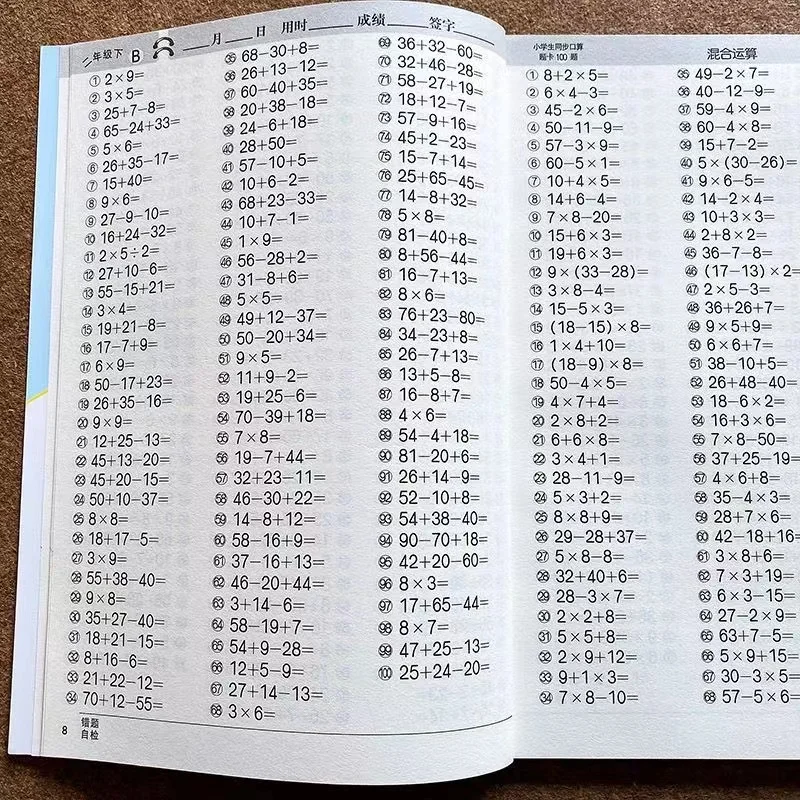 二年级下 B ___月___日 用时______ 成绩______ 签字______
① 2×9=
② 3×5=
③ 25+7-8=
④ 65-24+33=
⑤ 5×6=
⑥ 26+35-17=
⑦ 15+40=
⑧ 9×6=
⑨ 27-9-10=
⑩ 16+24-32=
⑪ 2×5÷2=
⑫ 27+10-6=
⑬ 55-15+21=
⑭ 3×4=
⑮ 19+21-8=
⑯ 17-7+9=
⑰ 6×9=
⑱ 50-17+23=
⑲ 26+35-16=
⑳ 9×9=
㉑ 12+25-13=
㉒ 45+13-20=
㉓ 45+20-15=
㉔ 50+10-37=
㉕ 8×8=
㉖ 18+17-5=
㉗ 3×9=
㉘ 55+38-40=
㉙ 9×8=
㉚ 35+27-40=
㉛ 18+21-15=
㉜ 8+16-6=
㉝ 21+22-12=
㉞ 70+12-55=
㉟ 68-30+8=
㊱ 26+13-12=
㊲ 60-40+35=
㊳ 20+38-18=
㊴ 24-6+18=
㊵ 28+50=
㊶ 57-10+5=
㊷ 10+6-2=
㊸ 68+23-33=
㊹ 10+7-1=
㊺ 1×9=
㊻ 56-28+2=
㊼ 31-8+6=
㊽ 5×5=
㊾ 49+12-37=
㊿ 50-20+34=
51 9×5=
52 11+9-2=
53 19+25-6=
54 70-39+18=
55 7×8=
56 19-7+44=
57 32+23-11=
58 46-30+22=
59 14-8+12=
60 58-16+9=
61 37-16+13=
62 46-20+44=
63 3+14-6=
64 58-19+7=
65 54+9-28=
66 12+5-9=
67 27+14-13=
68 3×6=
69 36+32-60=
70 32+46-28=
71 58-27+19=
72 18+12-7=
73 57-9+16=
74 45+2-23=
75 15-7+14=
76 25+65-45=
77 14-8+32=
78 5×8=
79 81-40+8=
80 8+56-44=
81 16-7+13=
82 8×6=
83 76+23-80=
84 34-23+8=
85 26-7+13=
86 13+5-8=
87 16-8+7=
88 4×6=
89 54-4+18=
90 81-20+6=
91 26+14-9=
92 52-10+8=
93 54+38-40=
94 90-70+18=
95 42+20-60=
96 8×3=
97 17+65-44=
98 8×7=
99 47+25-13=
100 25+24-20=
8
错题
自检
小学生同步口算
题卡100题
混合运算
① 8+2×5=
② 6×4-3=
③ 45-2×6=
④ 50-11-9=
⑤ 57-3×9=
⑥ 60-5×1=
⑦ 10+4×5=
⑧ 14+6-4=
⑨ 7×8-20=
⑩ 15+6×3=
⑪ 19+6×3=
⑫ 9×(33-28)=
⑬ 3×8-4=
⑭ 15-5×3=
⑮ (18-15)×8=
⑯ 1×4+10=
⑰ (18-9)×8=
⑱ 50-4×5=
⑲ 4×7+4=
⑳ 2×8+2=
㉑ 6+6×8=
㉒ 3×4+1=
㉓ 28-11-9=
㉔ 5×3+2=
㉕ 8×8+9=
㉖ 29-28+37=
㉗ 5×8-8=
㉘ 32+40+6=
㉙ 28-3×7=
㉚ 2×2+8=
㉛ 5×5+8=
㉜ 2×9+12=
㉝ 9+1×3=
㉞ 7×8-10=
㉟ 49-2×7=
㊱ 40-12-9=
㊲ 59-4×9=
㊳ 60-4×8=
㊴ 15+7-2=
㊵ 5×(30-26)=
㊶ 9×6-5=
㊷ 14-2×4=
㊸ 10+3×3=
㊹ 2+8×2=
㊺ 36-7-8=
㊻ (17-13)×2=
㊼ 2×5-3=
㊽ 36+26+7=
㊾ 9×5+9=
㊿ 6×6+7=
51 38-10+5=
52 26+48-40=
53 18-6×2=
54 16+3×6=
55 7×8-50=
56 37+25-19=
57 4×6+8=
58 35-4×3=
59 28+7×6=
60 42-18+16=
61 3×8+6=
62 7×3+19=
63 6×3-15=
64 27-2×9=
65 63+7-5=
66 5×9+15=
67 30-3×5=
68 57-5×6=